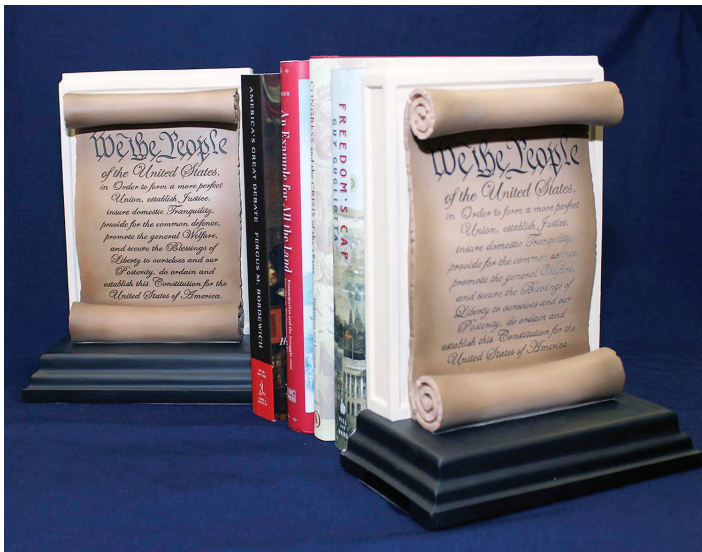 We the People
of the United States,
in Order to form a more perfect
Union, establish Justice,
insure domestic Tranquility,
provide for the common defence,
promote the general Welfare,
and secure the Blessings of
Liberty to ourselves and our
Posterity, do ordain and
establish this Constitution for the
United States of America.
AMERICA'S GREAT DEBATE FERGUS M. BORDEWICH
An Example for All the Land
CONGRESS and the CRISIS of the
FREEDOM'S CAP
GUY GUGLIOTTA
We the People
of the United States,
in Order to form a more perfect
Union, establish Justice,
insure domestic Tranquility,
provide for the common defence,
promote the general Welfare,
and secure the Blessings of
Liberty to ourselves and our
Posterity, do ordain and
establish this Constitution for the
United States of America.